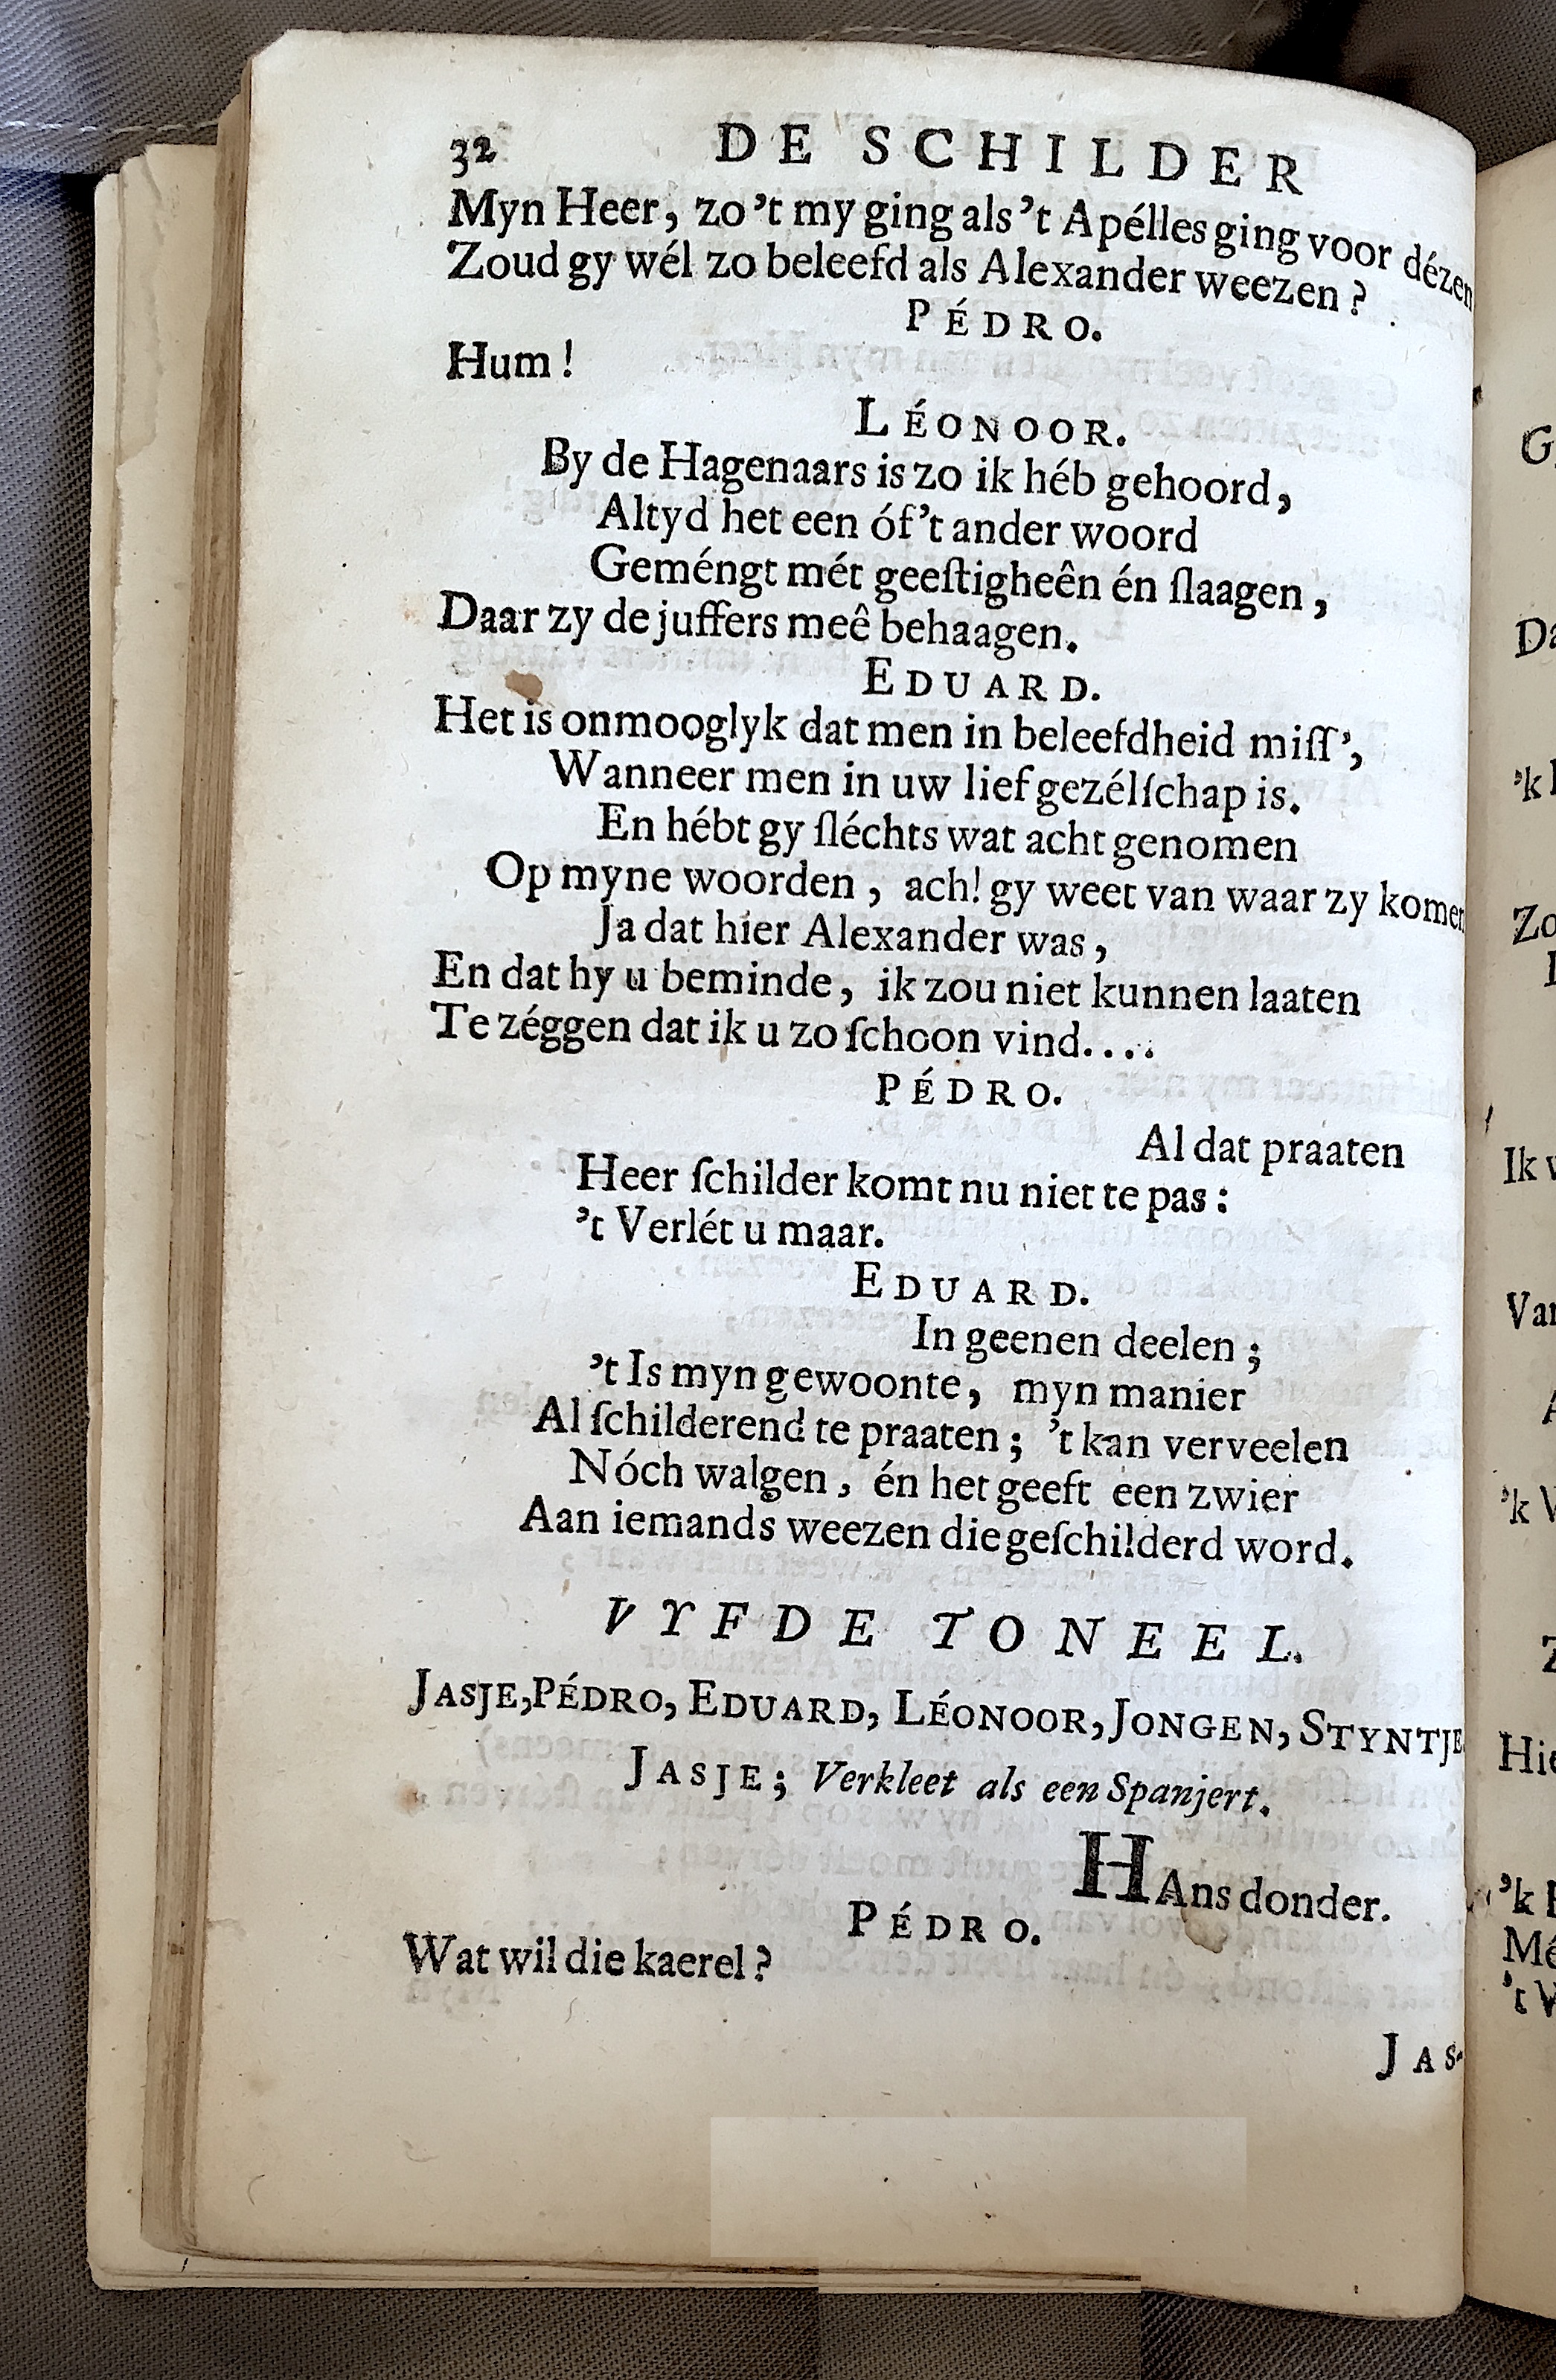 32 DE SCHILDER
Myn Heer, zo 't my ging als 't Apélles ging voor dézen
Zoud gy wél zo beleefd als Alexander weezen?
PÉDRO.
Hum!
LÉONOOR.
By de Hagenaars is zo ik héb gehoord,
Altyd het een óf 't ander woord
Geméngt mét geeſtigheên én ſlaagen,
Daar zy de juffers meê behaagen.
EDUARD.
Het is onmooglyk dat men in beleefdheid miſſ',
Wanneer men in uw lief gezélſchap is.
En hébt gy ſléchts wat acht genomen
Op myne woorden, ach! gy weet van waar zy komen
Ja dat hier Alexander was,
En dat hy u beminde, ik zou niet kunnen laaten
Te zéggen dat ik u zo ſchoon vind....
PÉDRO.
Al dat praaten
Heer ſchilder komt nu niet te pas:
't Verlét u maar.
EDUARD.
In geenen deelen;
't Is myn gewoonte, myn manier
Al ſchilderend te praaten; 't kan verveelen
Nóch walgen, én het geeft een zwier
Aan iemands weezen die geſchilderd word.
VYFDE TONEEL.
JASJE, PÉDRO, EDUARD, LÉONOOR, JONGEN, STYNTJE
JASJE; Verkleet als een Spanjert.
HAns donder.
PÉDRO.
Wat wil die kaerel?
JAS-
G
Da
'k
Zo
Ik
Van
'k V
Hie
'k
Mé
't V